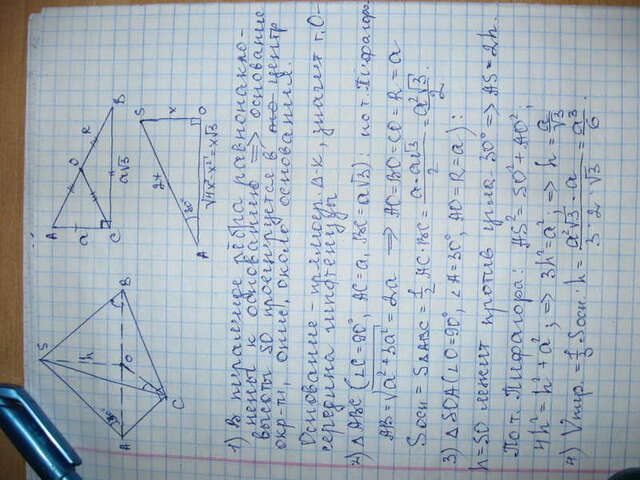 S
h
30°
A
O
B
C
A
O
R
B
a
C
a√3
S
2x
x
30°
A
O
√4x²-x² = x√3
1) В пирамиде рёбра равнонакло-
нены к основанию => основание
высоты SO проецируется в центр
окр-ти, опис. около основания.
Основание - прямоуг. Δ-к, значит т. O -
середина гипотенузы
2) ΔABC (∠C=90°, AC=a, BC=a√3): по т. Пифагора
AB = √a²+3a² = 2a => AO=BO=CO=R=a
Sосн = SΔABC = 1/2 AC·BC = a·a√3/2 = a²√3/2.
3) ΔSOA (∠O=90°, ∠A=30°, AO=R=a):
h=SO лежит против угла 30° => AS=2h.
По т. Пифагора: AS²=SO²+AO²,
4h²=h²+a²; => 3h²=a² => h=a/√3
4) Vпир. = 1/3 Sосн·h = a²√3·a/3·2·√3 = a³/6